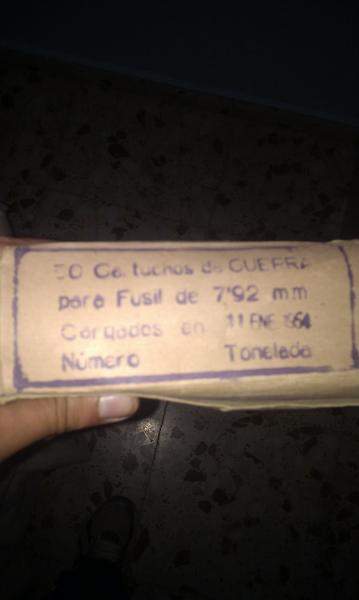 50 Cartuchos de GUERRA
para Fusil de 7'92 mm
Cargados en 11 ENE 1964
Número Tonelada